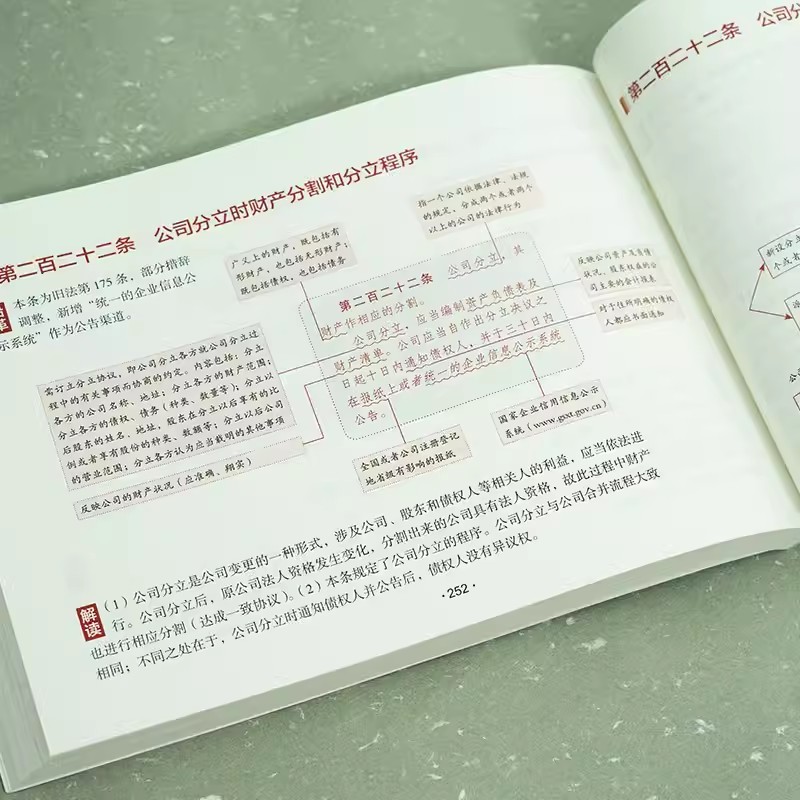 第二百二十二条 公司分立时财产分割和分立程序
本条为旧法第 175 条,部分措辞
调整,新增“统一的企业信息公
示系统”作为公告渠道。
广义上的财产,既包括有
形财产,也包括无形财产;
既包括债权,也包括债务
指一个公司依据法律、法规
的规定,分成两个或者两个
以上的公司的法律行为
第二百二十二条 公司分立,其
财产作相应的分割。
公司分立,应当编制资产负债表及
财产清单。公司应当自作出分立决议之
日起十日内通知债权人,并于三十日内
在报纸上或者统一的企业信息公示系统
公告。
反映公司资产及负债
状况、股东权益的公
司主要的会计报表
对于任何明确的债权
人都应书面通知
需订立分立协议,即公司分立各方就公司分立过
程中的有关事项而协商的约定。内容包括:分立
各方的公司名称、地址;分立各方的财产范围;
分立各方的债权、债务(种类、数量等);分立以
后股东的姓名、地址,股东在分立以后享有的比
例或者享有股份的种类、数额等;分立以后公司
的营业范围;分立各方认为应当载明的其他事项
反映公司的财产状况(应准确、翔实)
全国或者公司注册登记
地省级有影响的报纸
国家企业信用信息公示
系统(www.gsxt.gov.cn)
解读
(1)公司分立是公司变更的一种形式,涉及公司、股东和债权人等相关人的利益,应当依法进
行。公司分立后,原公司法人资格发生变化,分割出来的公司具有法人资格,故此过程中财产
也进行相应分割(达成一致协议)。(2)本条规定了公司分立的程序。公司分立与公司合并流程大致
相同;不同之处在于,公司分立时通知债权人并公告后,债权人没有异议权。
·252·
第二百二十二条 公司分
新设分立
个或者